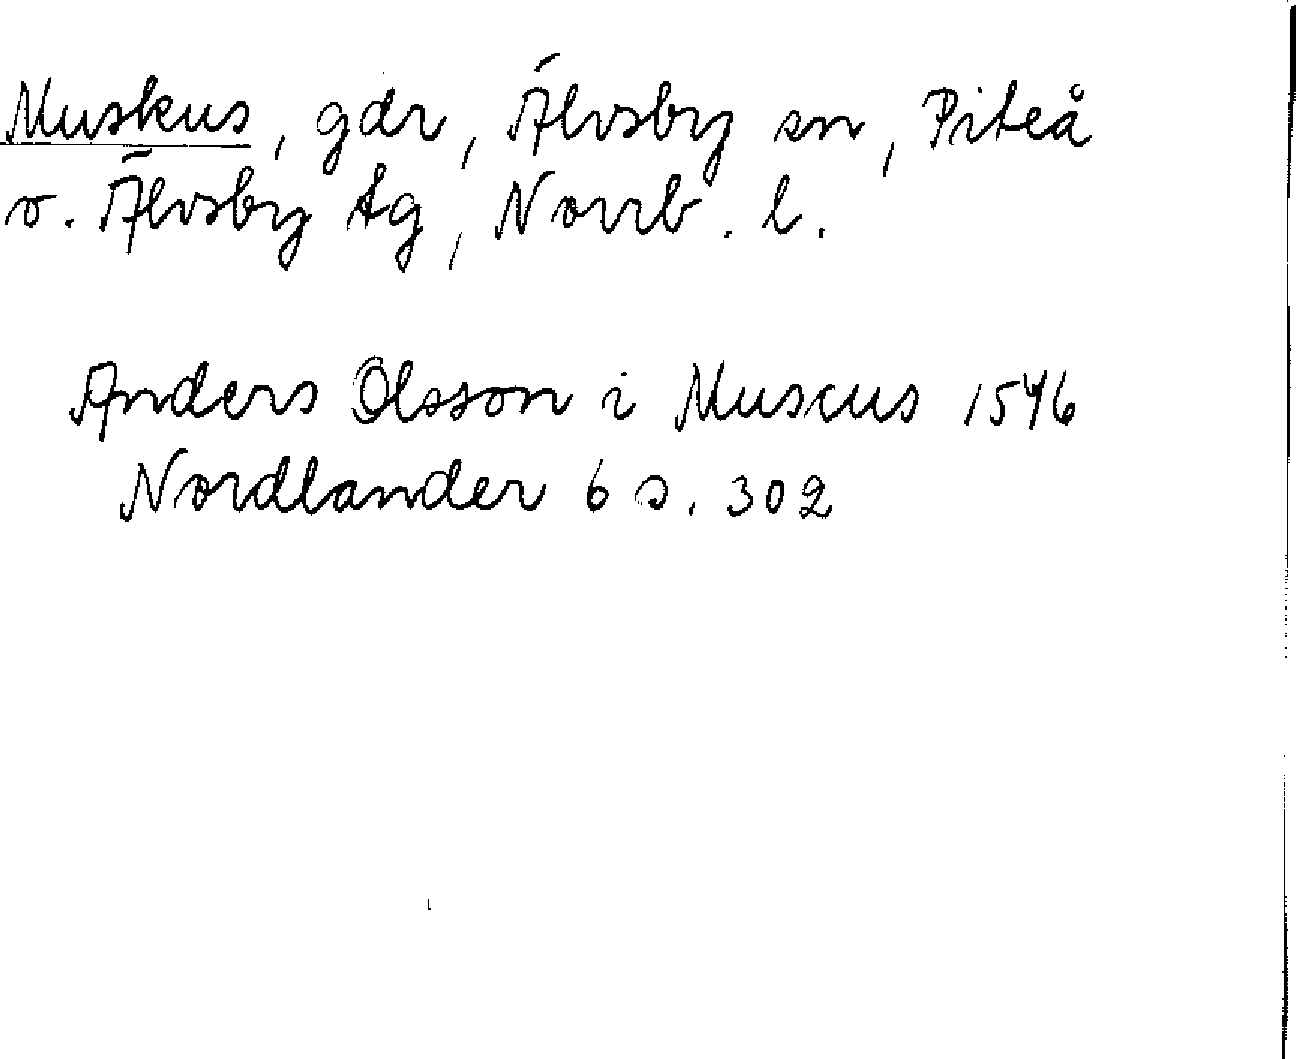 Muskus, gdr, Älvsby sn, Piteå
o. Älvsby tg, Norrb. l.
Anders Olsson i Muscus 1546
Nordlander 6 s. 302